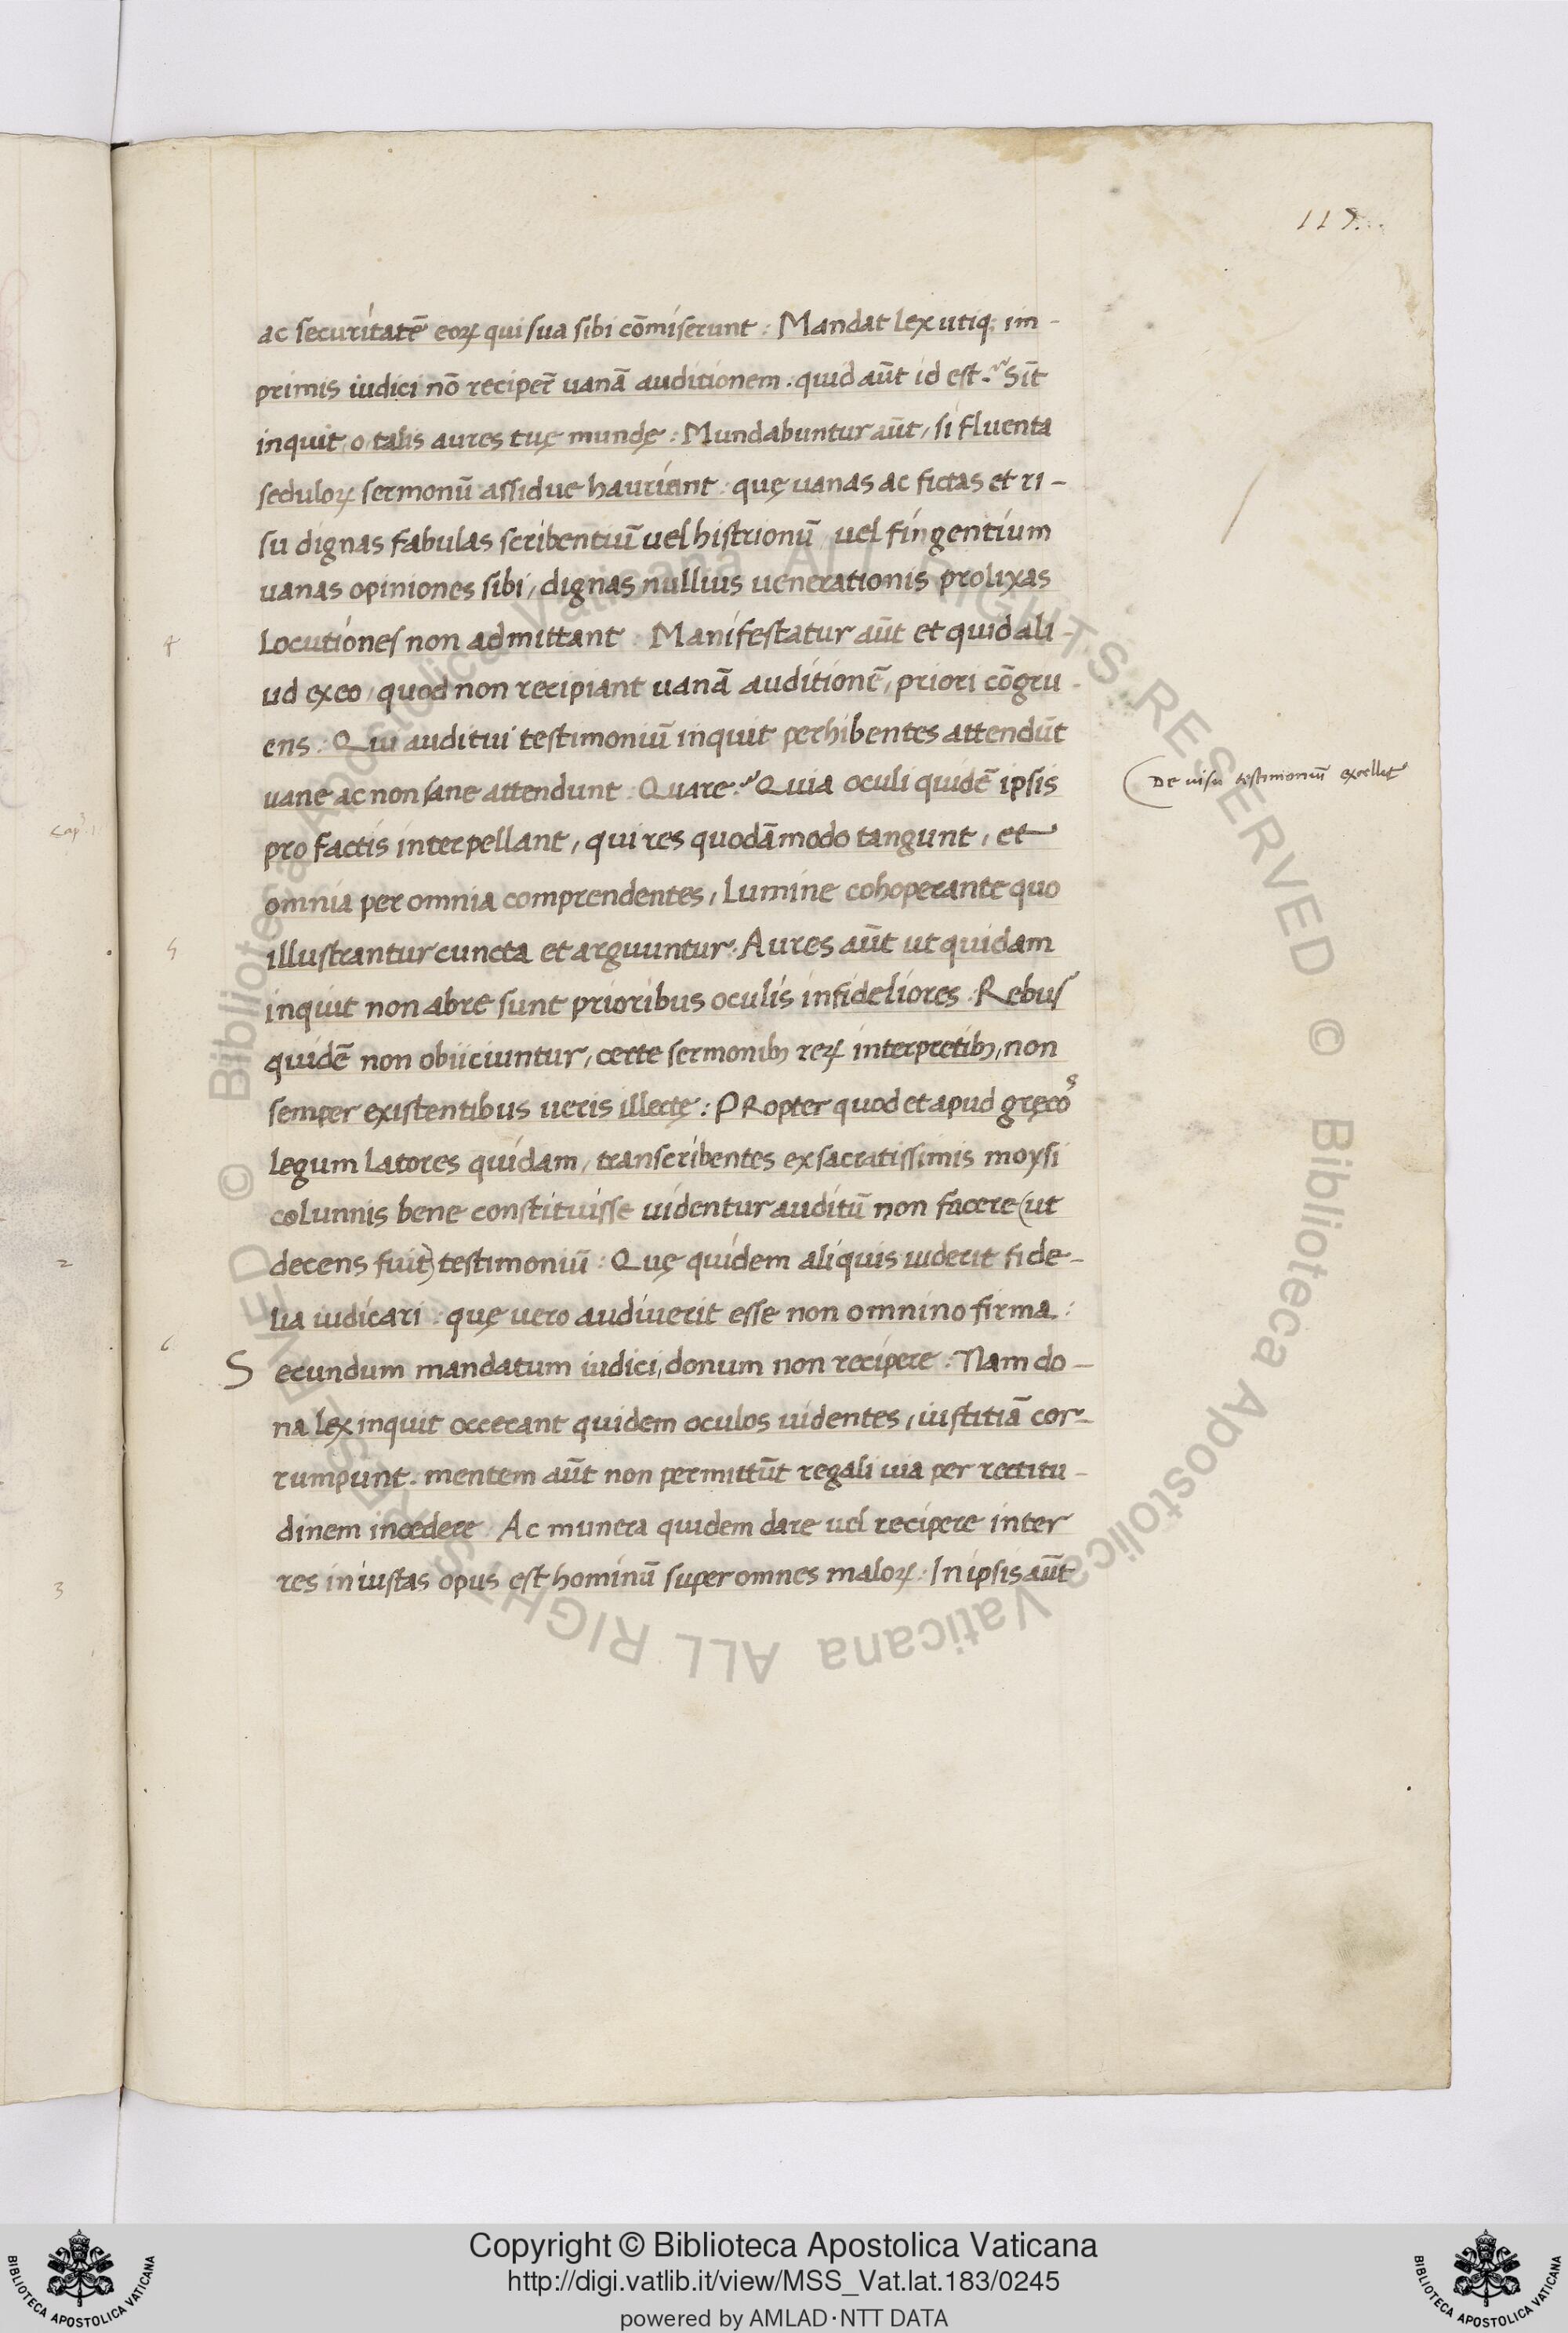 119.
ac securitatē eoꝝ qui sua sibi cōmiserunt : Mandat lex utiqꝫ im-
primis iudici nō reciper̄ uanā auditionem . quid aūt id est. Sīt
inquit o talis aures tuę mundę : Mundabuntur aūt, si fluenta
seduloꝝ sermonū assidue hauriant : quę uanas ac fictas et ri-
su dignas fabulas scribentiū uel histrionū uel fingentium
uanas opiniones sibi, dignas nullius uenerationis prolixas
locutiones non admittant : Manifestatur aūt et quid ali-
4
ud ex eo, quod non recipiant uanā auditionē, priori cōgru-
ens : Qui auditui testimoniū inquit perhibentes attendūt
uane ac non sane attendunt : Quare : Quia oculi quidē ipsis
De uisu testimoniū excellit
pro factis interpellant, qui res quodāmodo tangunt, et
omnia per omnia comprendentes, lumine cohoperante quo
illustrantur cuncta et arguuntur . Aures aūt ut quidam
5
inquit non abre sunt prioribus oculis infideliores . Rebus
quidē non obiiciuntur, certe sermonibꝫ reꝝ interpretibꝫ, non
semper existentibus ueris illectę : PRopter quod et apud gręcos
legum latores quidam, transcribentes ex sacratissimis moysi
colunnis bene constituisse uidentur auditū non facere (ut
decens fuit) testimoniū : Quę quidem aliquis uiderit fide-
lia iudicari : quę uero audiuerit esse non omnino firma :
6
Secundum mandatum iudici, donum non recipere : Nam do-
na lex inquit occecant quidem oculos uidentes, iustitiā cor-
rumpunt . mentem aūt non permittūt regali uia per rectitu-
dinem incedere : Ac munera quidem dare uel recipere inter
res iniustas opus est hominū super omnes maloꝝ : In ipsis aūt
cap.
2
3
© Biblioteca Apostolica Vaticana ALL RIGHTS RESERVED © Biblioteca Apostolica Vaticana ALL RIGHTS RESERVED
BIBLIOTECA APOSTOLICA VATICANA
Copyright © Biblioteca Apostolica Vaticana
http://digi.vatlib.it/view/MSS_Vat.lat.183/0245
powered by AMLAD·NTT DATA
BIBLIOTECA APOSTOLICA VATICANA